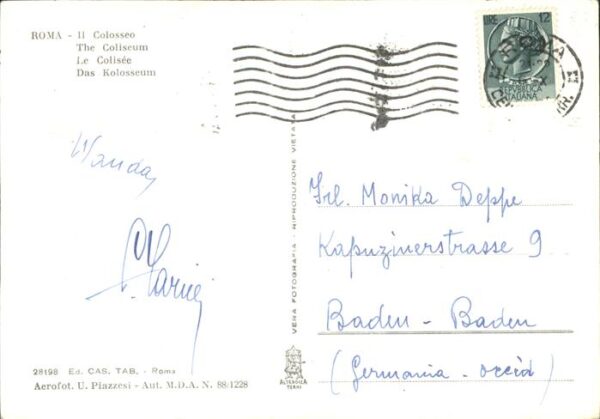 ROMA - Il Colosseo
The Coliseum
Le Colisée
Das Kolosseum
LIRE 12
REPUBBLICA
ITALIANA
Wanda
VERA FOTOGRAFIA - RIPRODUZIONE VIETATA
Frl. Monika Deppe
Kapuzinerstrasse 9
Baden - Baden
(Germania - occid)
28198 Ed. CAS. TAB. - Roma
Aerofot. U. Piazzesi - Aut. M.D.A. N. 88/1228
ALTEROCCA
TERNI